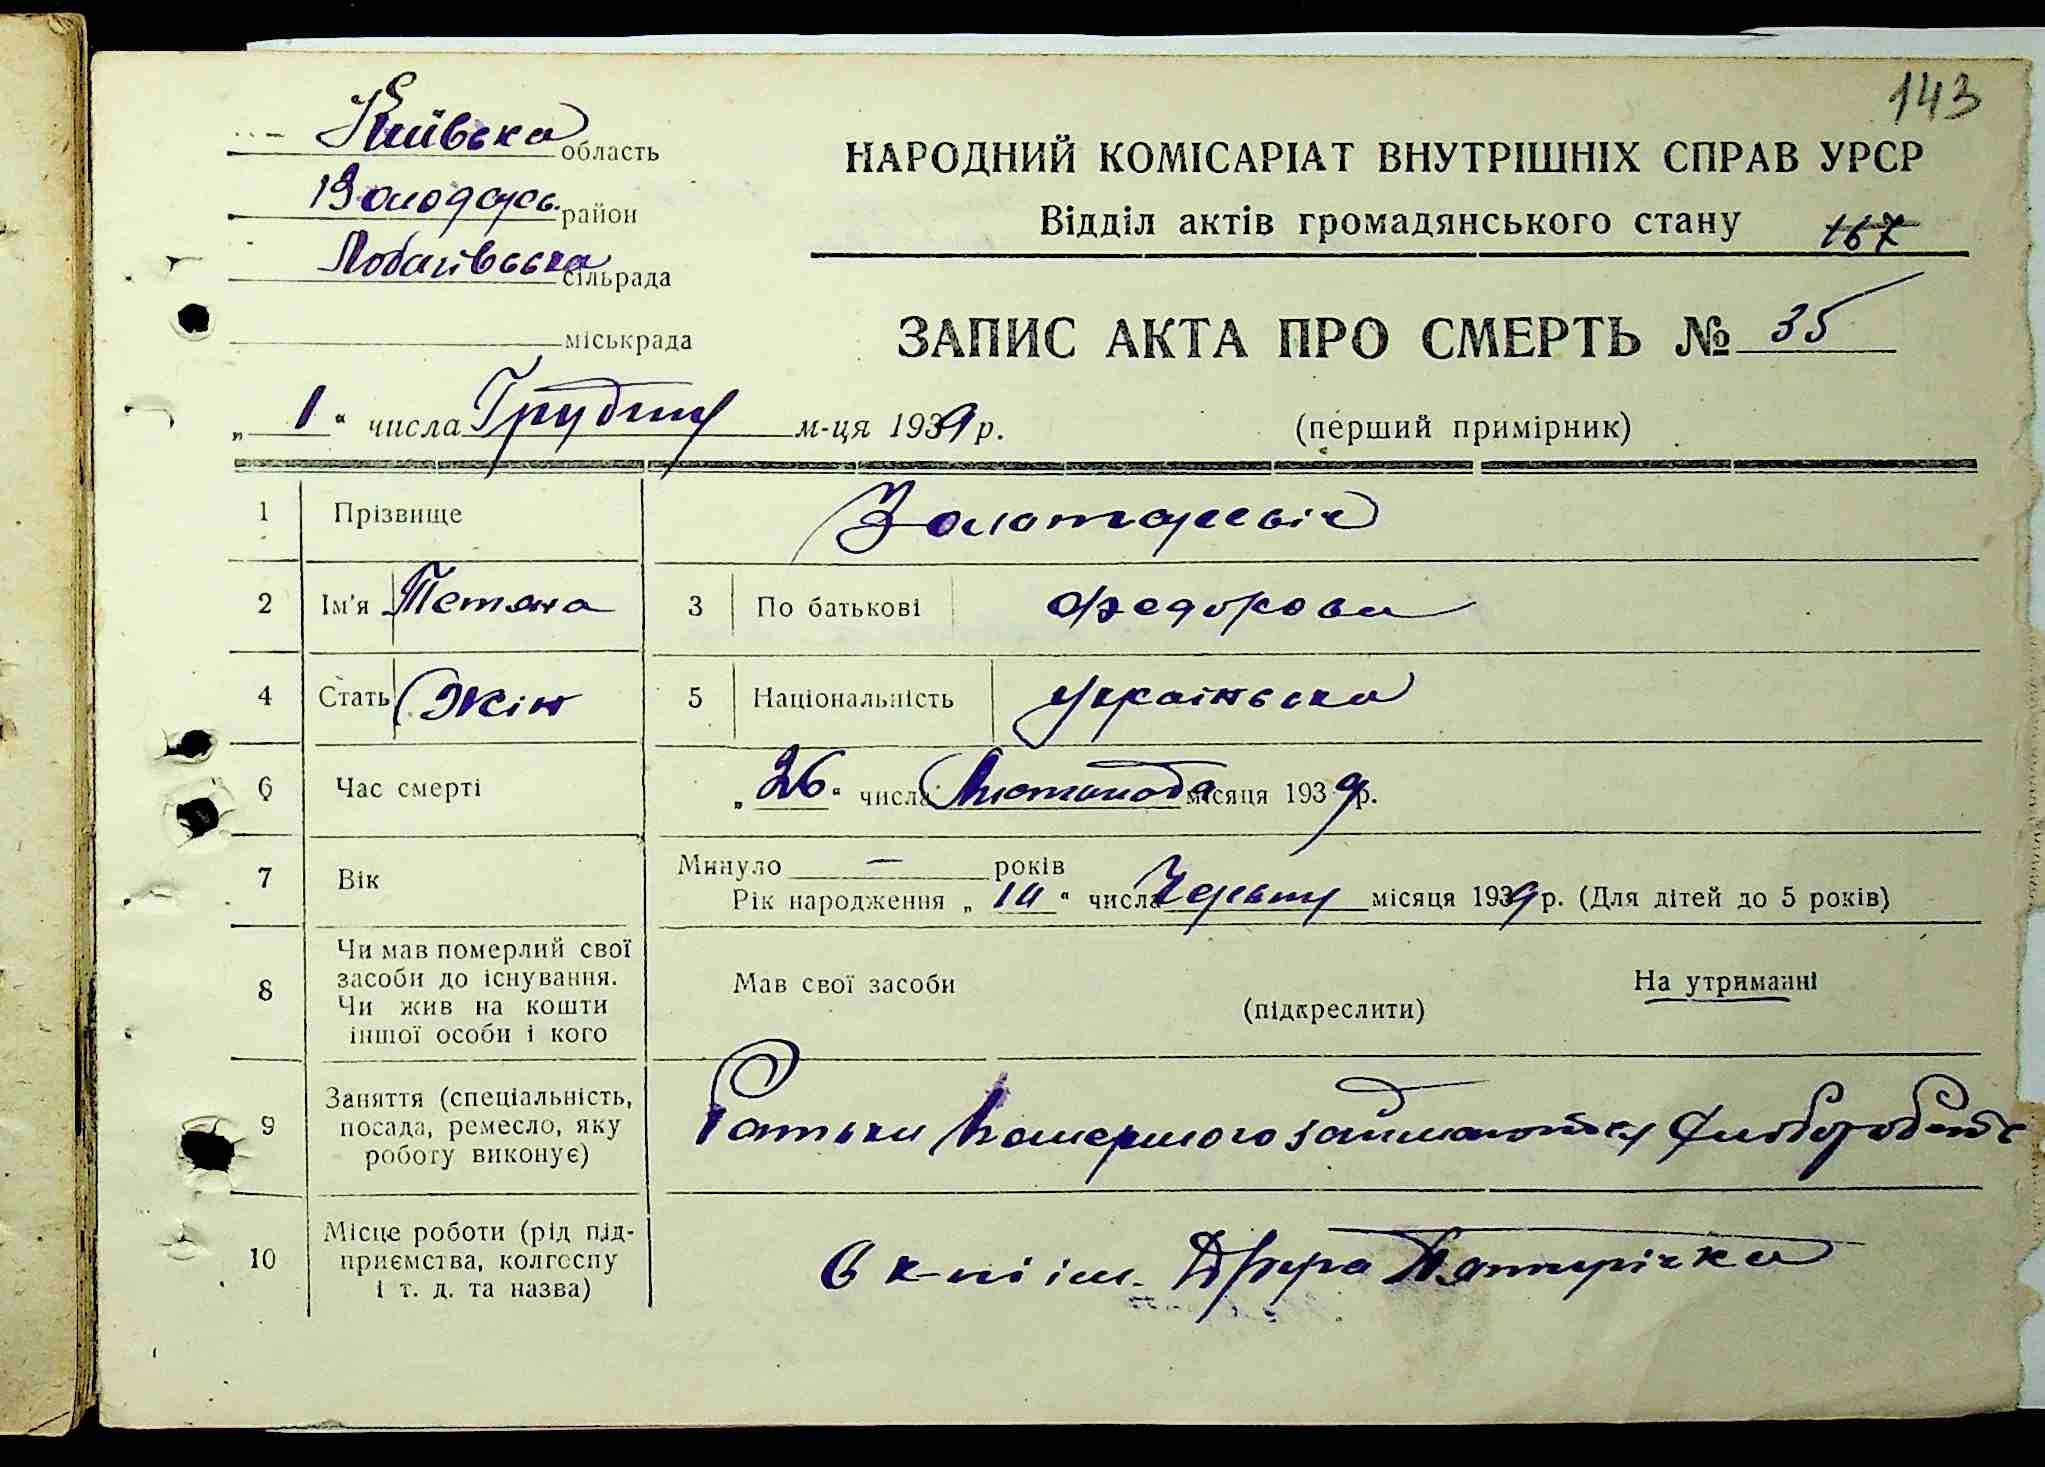 143
Київська область
Володарсь. район
Лобачівська сільрада
міськрада
НАРОДНИЙ КОМІСАРІАТ ВНУТРІШНІХ СПРАВ УРСР
Відділ актів громадянського стану
167
ЗАПИС АКТА ПРО СМЕРТЬ № 35
„ 1 “ числа Грудня м-ця 1939 р.
(перший примірник)
1 Прізвище
2 Ім'я Тетяна 3 По батькові Федорова
4 Стать Жін 5 Національність Українська
6 Час смерті „ 26 “ числа Листопада місяця 1939 р.
7 Вік Минуло — років
Рік народження „ “ числа Червня місяця 1939 р. (Для дітей до 5 років)
8 Чи мав померлий свої
засоби до існування.
Чи жив на кошти
іншої особи і кого
Мав свої засоби (підкреслити) На утриманні
9 Заняття (спеціальність,
посада, ремесло, яку
роботу виконує)
Батьки Помершого займаються
10 Місце роботи (рід під-
приємства, колгоспу
і т. д. та назва)
В к-пі ім. Друга Пятирічка